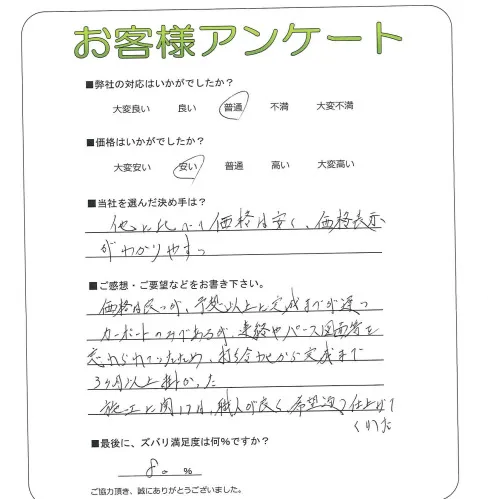 お客様アンケート
■弊社の対応はいかがでしたか？
大変良い 良い 普通 不満 大変不満
■価格はいかがでしたか？
大変安い 安い 普通 高い 大変高い
■当社を選んだ決め手は？
他に比べ 価格は安く、価格表示
がわかりやすっ
■ご感想・ご要望などをお書き下さい。
価格は良っが、予想以上に完成までが遅っ
カーポートのみであるが、連絡やパース図面等を
忘れられていったため、打ち合わせから完成まで
3ヶ月以上掛かった
施工に関しては、職人が良く、希望通り仕上げて
くれた
■最後に、ズバリ満足度は何%ですか？
80 %
ご協力頂き、誠にありがとうございました。